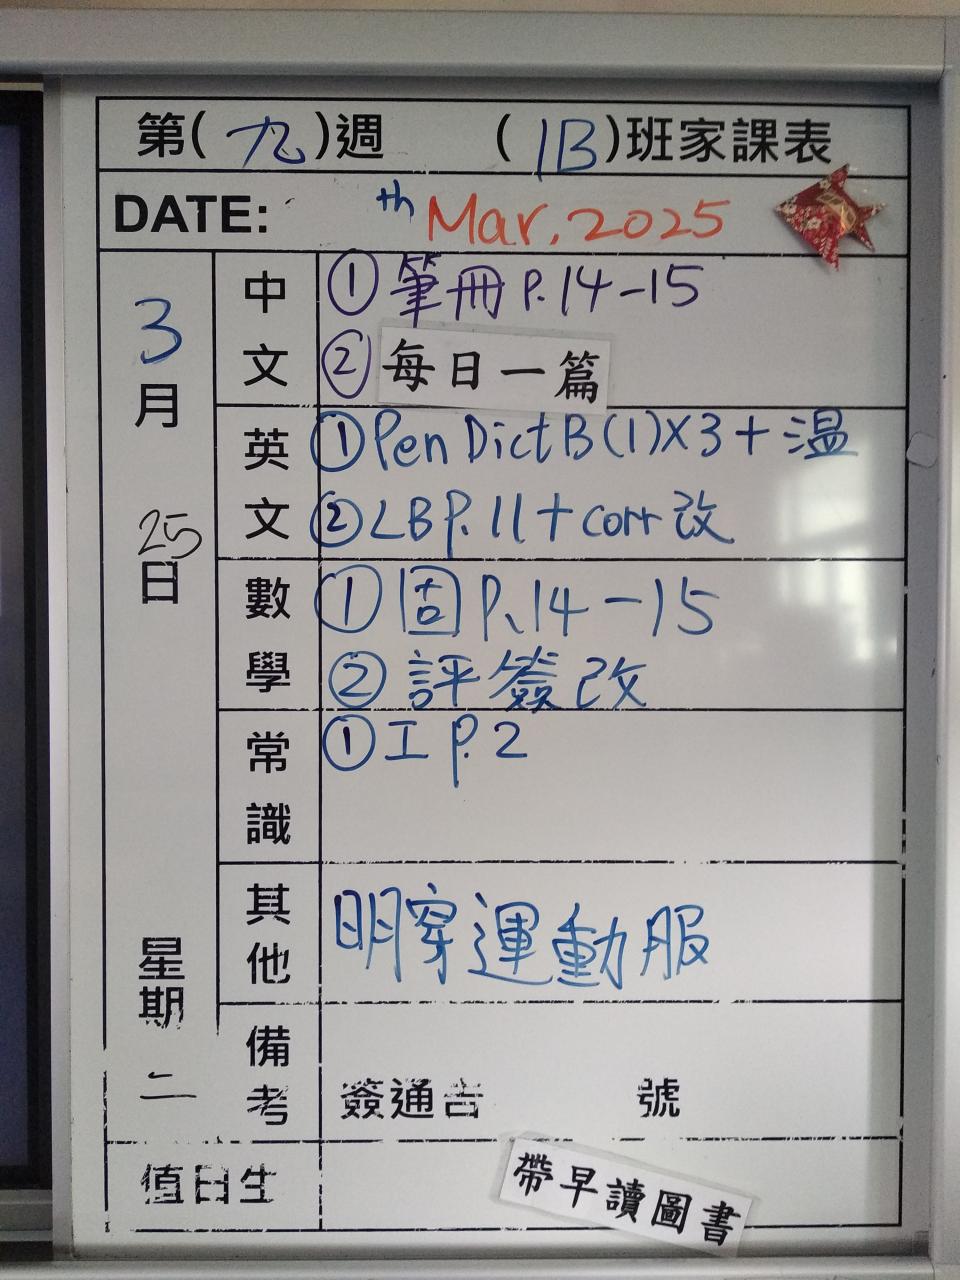 第(九)週 (1B)班家課表
DATE: th Mar. 2025
3月25日 星期二
中文
①筆冊 P.14-15
②每日一篇
英文
①Pen Dict B(1)X3+溫
②LB P.11+corr 改
數學
①固 P.14-15
②評簽改
常識
①工 P.2
其他
明穿運動服
備考
簽通告 號
值日生
帶早讀圖書